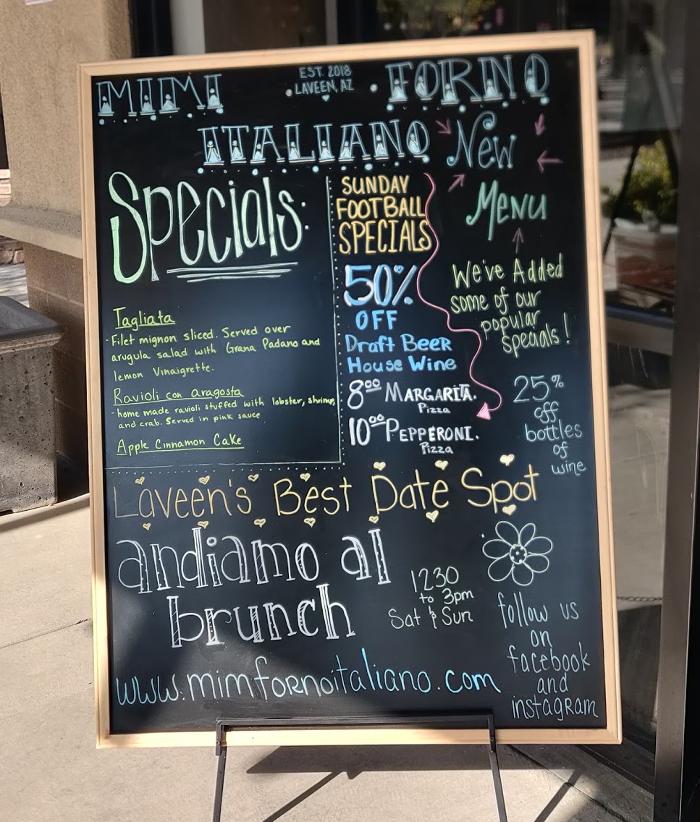 MIMI
EST. 2018
LAVEEN, AZ
FORNO
ITALIANO
Specials:
Tagliata
-Filet mignon sliced. Served over
arugula salad with Grana Padano and
lemon Vinaigrette.
Ravioli con aragosta
-home made ravioli stuffed with lobster, shrimp
and crab. Served in pink sauce
Apple Cinnamon Cake
SUNDAY
FOOTBALL
SPECIALS
50%
OFF
Draft Beer
House Wine
8⁰⁰ MARGARITA.
Pizza
10⁰⁰ PEPPERONI.
Pizza
New
Menu
We've Added
some of our
popular
specials!
25%
off
bottles
of
wine
Laveen's Best Date Spot
andiamo al
brunch
1230
to 3pm
Sat & Sun
follow us
on
facebook
and
instagram
www.mimfornoitaliano.com